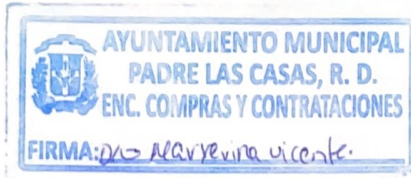 AYUNTAMIENTO MUNICIPAL
PADRE LAS CASAS, R. D.
ENC. COMPRAS Y CONTRATACIONES
FIRMA: Maryerina Vicente.